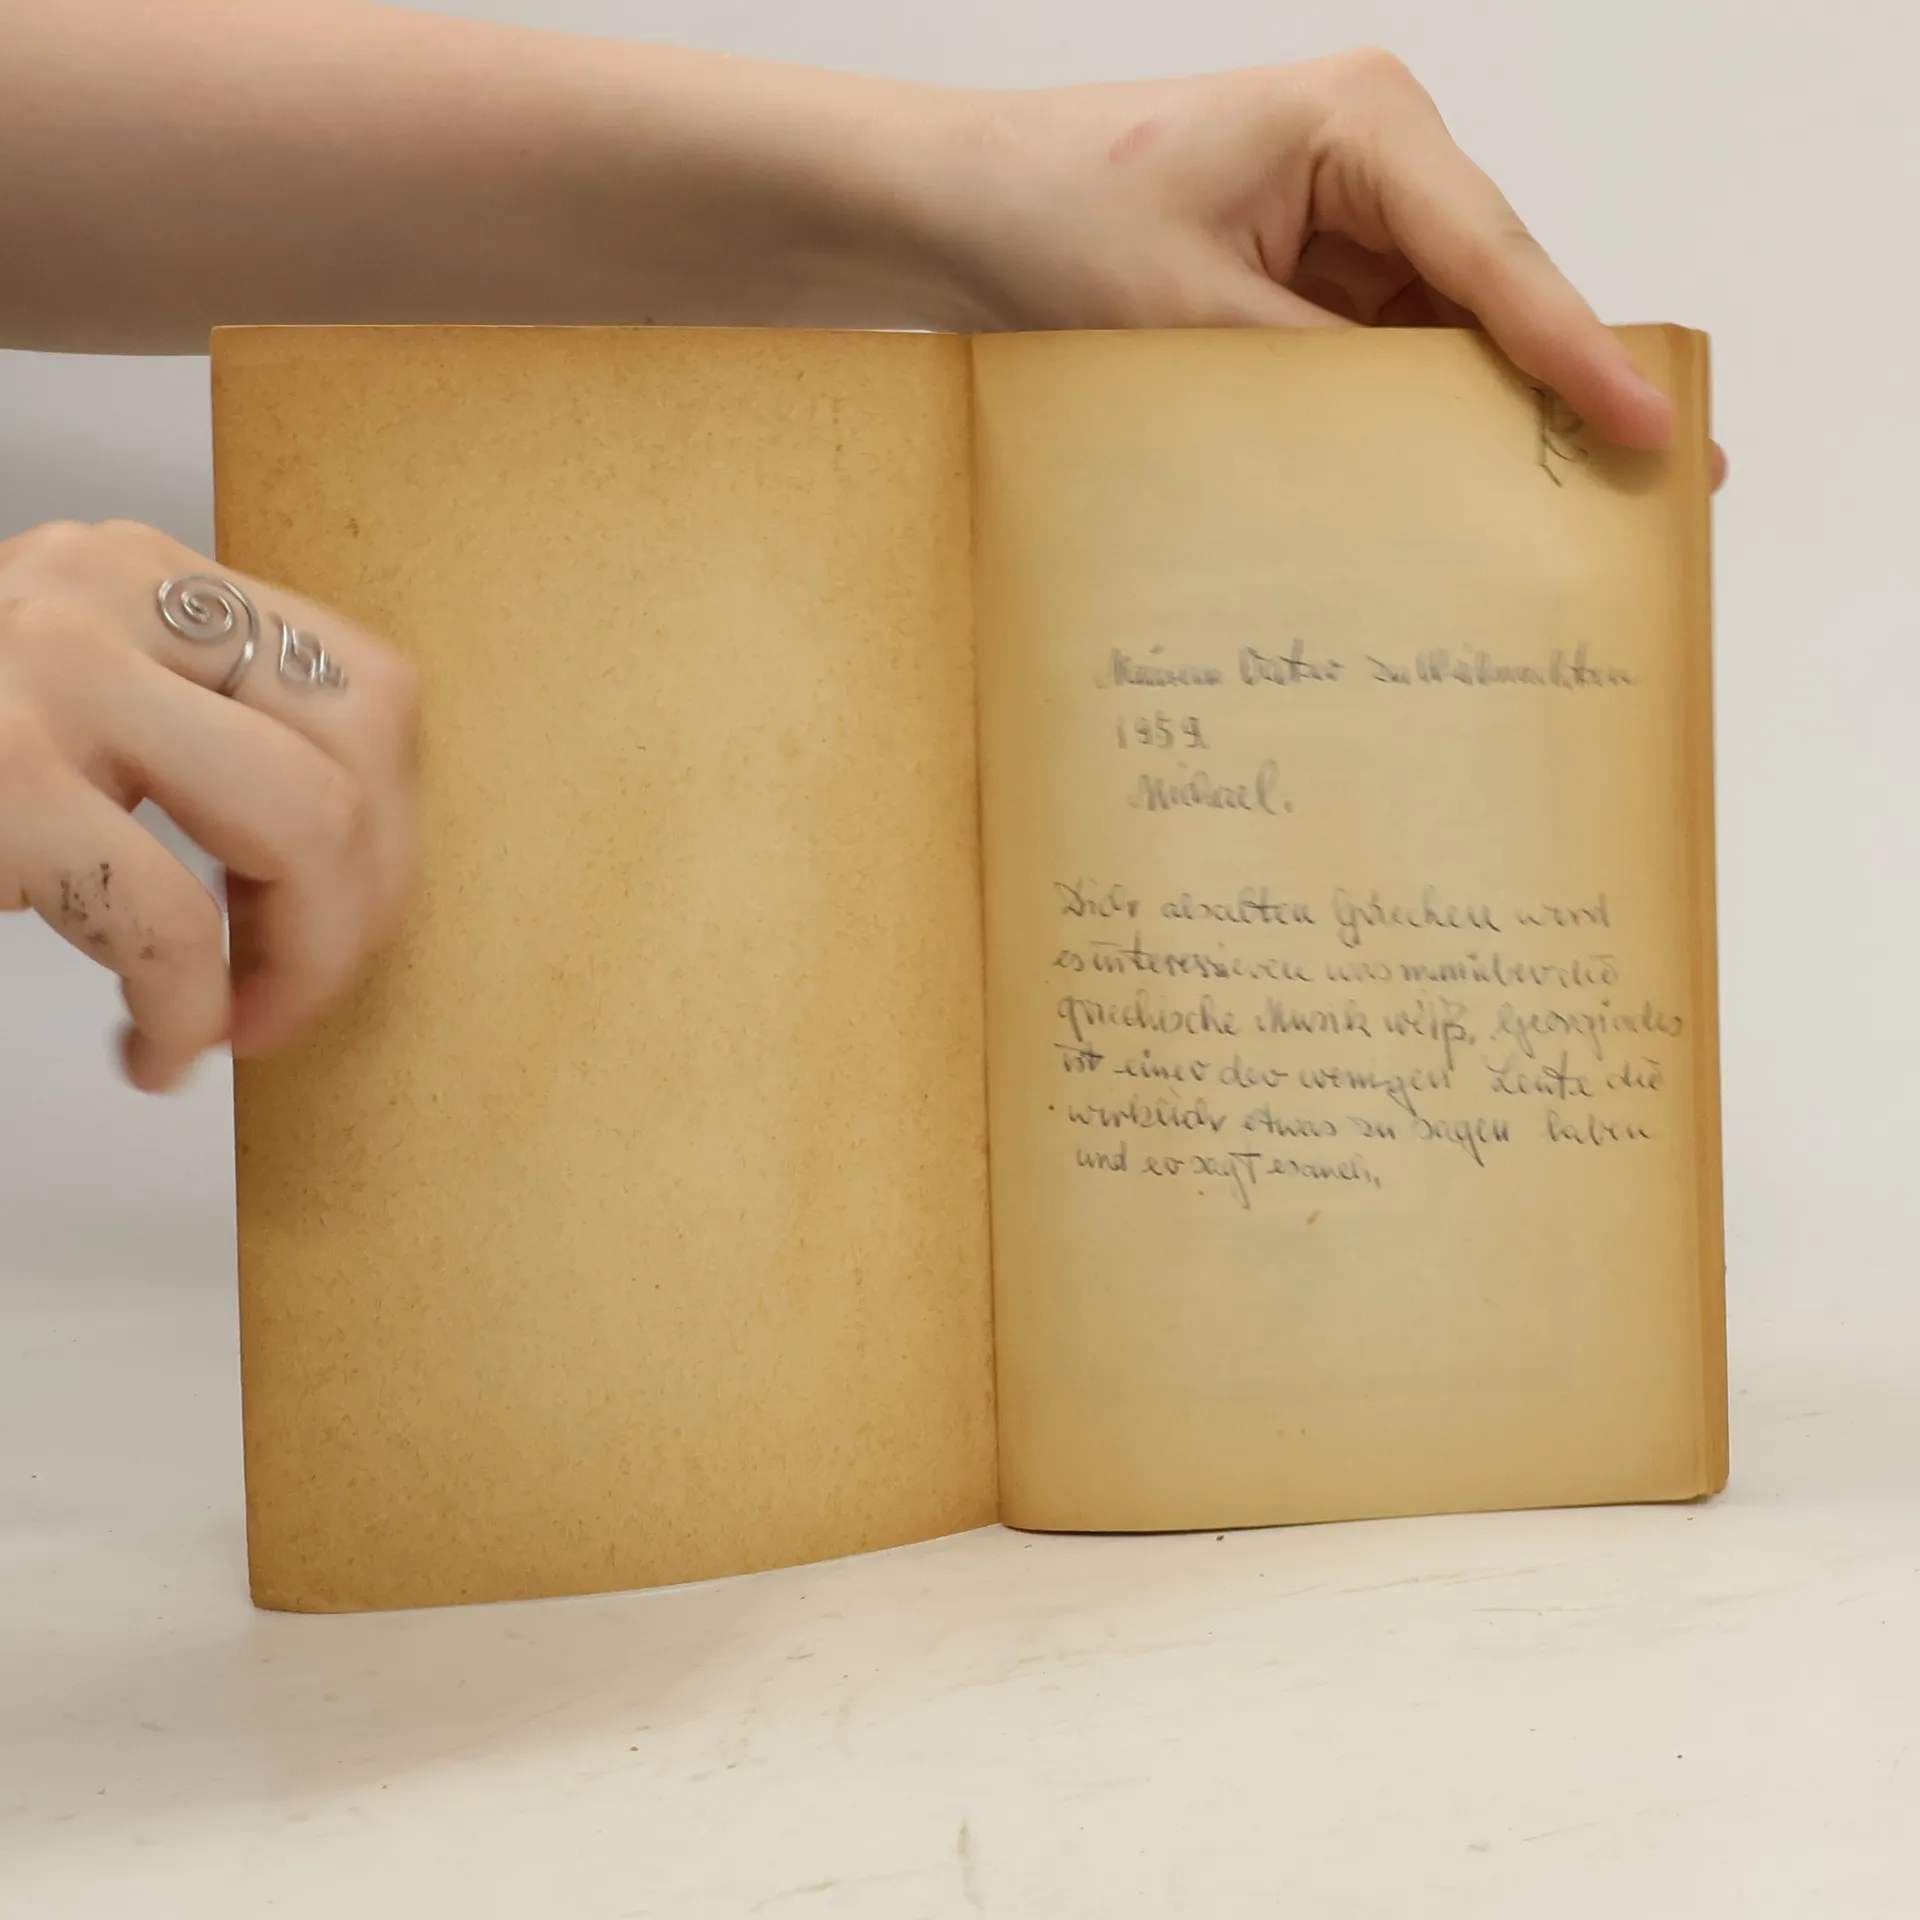 Meinem Vater zu Weihnachten
1959
Michael.
Dich als alten Griechen wird
es interessieren was man über die
griechische Musik weiß. Georgiades
ist einer der wenigen Leute die
wirklich etwas zu sagen haben
und er sagt es auch.